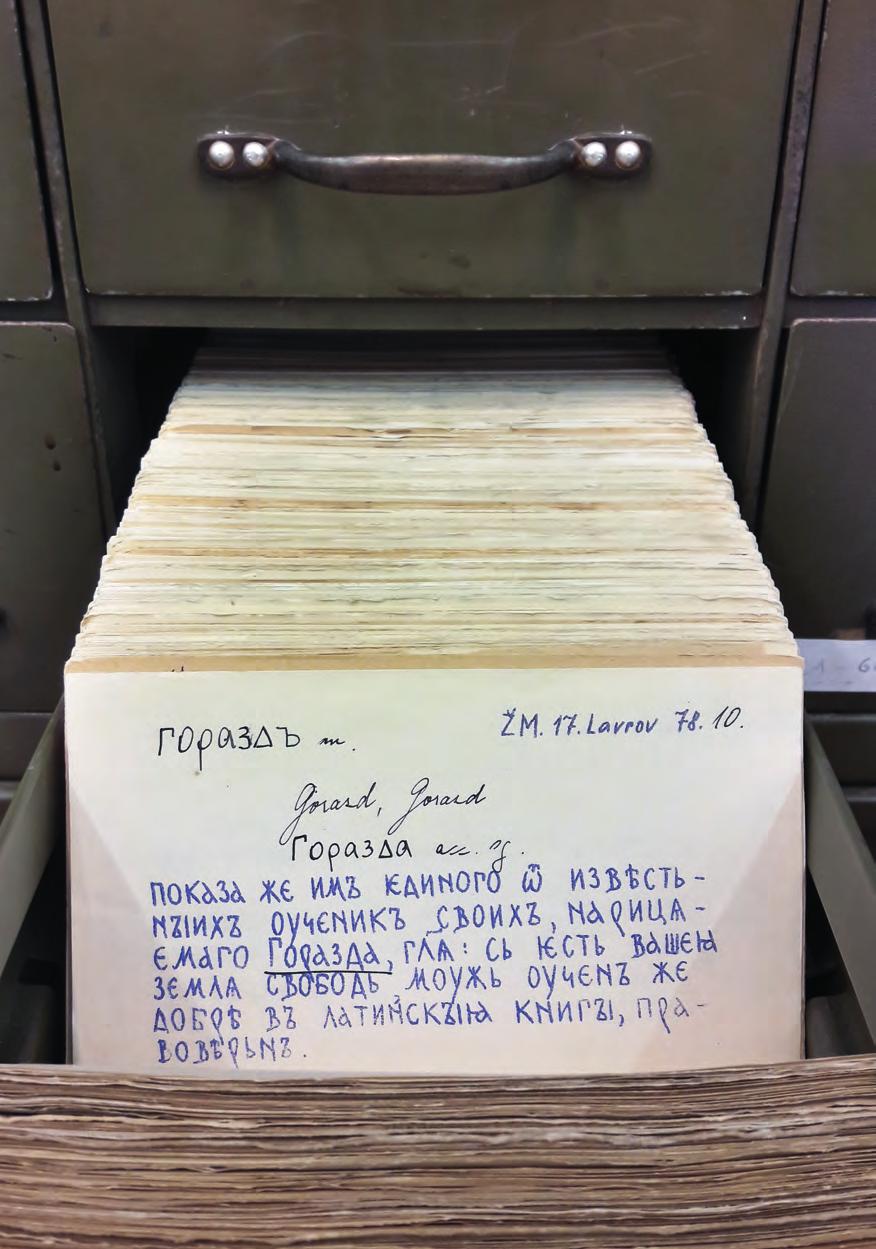 гораздъ m.
ŽM. 17. Lavrov 78.10.
Gorazd, Gorazd
Горазда acc. sg.
показа же имъ ѥдиного ѿ извѣсть-
нъіихъ оученикъ своихъ, нарица-
ѥмаго Горазда, глꙗ: сь ѥсть вашеꙗ
землꙗ свободь моужь оученъ же
добрѣ въ латиньскъіꙗ книгъі, пра-
вовѣрьнъ.